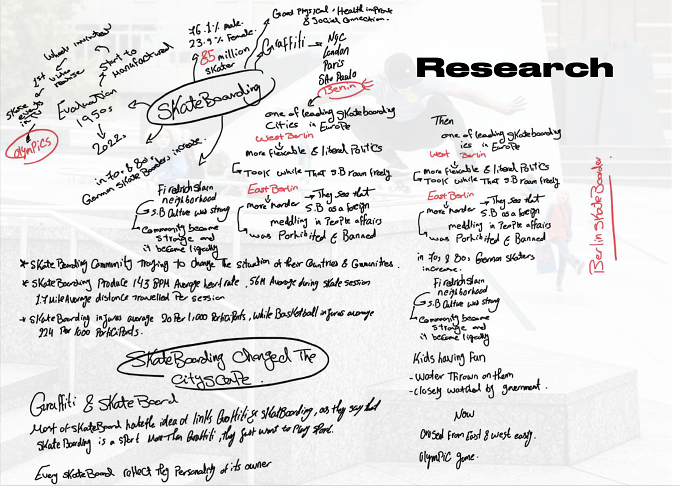 Research
Good Physical, Health improve
& Social Connection.
76.1% male.
23.9% Female.
85 million
skater
Graffiti
NYC
London
Paris
São Paulo
Berlin
SKateBoarding
start to
manufactured
Wheels invented
1st
Evaluation
1950s
2022s
Olympics
in 70s & 80s
German skateBoarders increase.
one of leading skateboarding
Cities in Europe
West Berlin
more flexuable & literal Politics
Tools while That S.B roam freely
East Berlin
more harder
They see that
S.B as a foreign
meddling in People affairs
was Porhibited & Banned
neighborhood
S.B Culture was strong
Community became
stronge and
it became ligeally
* SKateBoarding Community Traying to change The situation of their Countries & Communities.
* SkateBoarding Produce 143 BPM Average heart rate, 56M Average during skate session
Mile Average distance Travelled Per session
* SkateBoarding injures average 20 Per 1,000 , while BasketBall injures average
224 Per 1000
SkateBoarding Changed The
CityScape.
Graffiti & SkateBoard
Most of SkateBoard the idea of link Graffiti & SkateBoarding, as they say that
Skate Boarding is a sport More Then Graffiti, They Just want to Play Sport.
Every SkateBoard reflect They Personality of its owner
Then
one of leading skateboarding
ies in Europe
West Berlin
more flexuable & literal Politics
Tools while That S.B roam freely
East Berlin
more harder
They see that
S.B as a foreign
meddling in People affairs
was Porhibited & Banned
in 70s & 80s, German skaters
increase.
neighborhood
S.B Culture was strong
Community became
stronge and
it became ligeally
Kids having Fun
- Water Thrown on them
- closely watched by government.
Now
from East & west easly.
Olympic game.
Berlin SkateBoarder